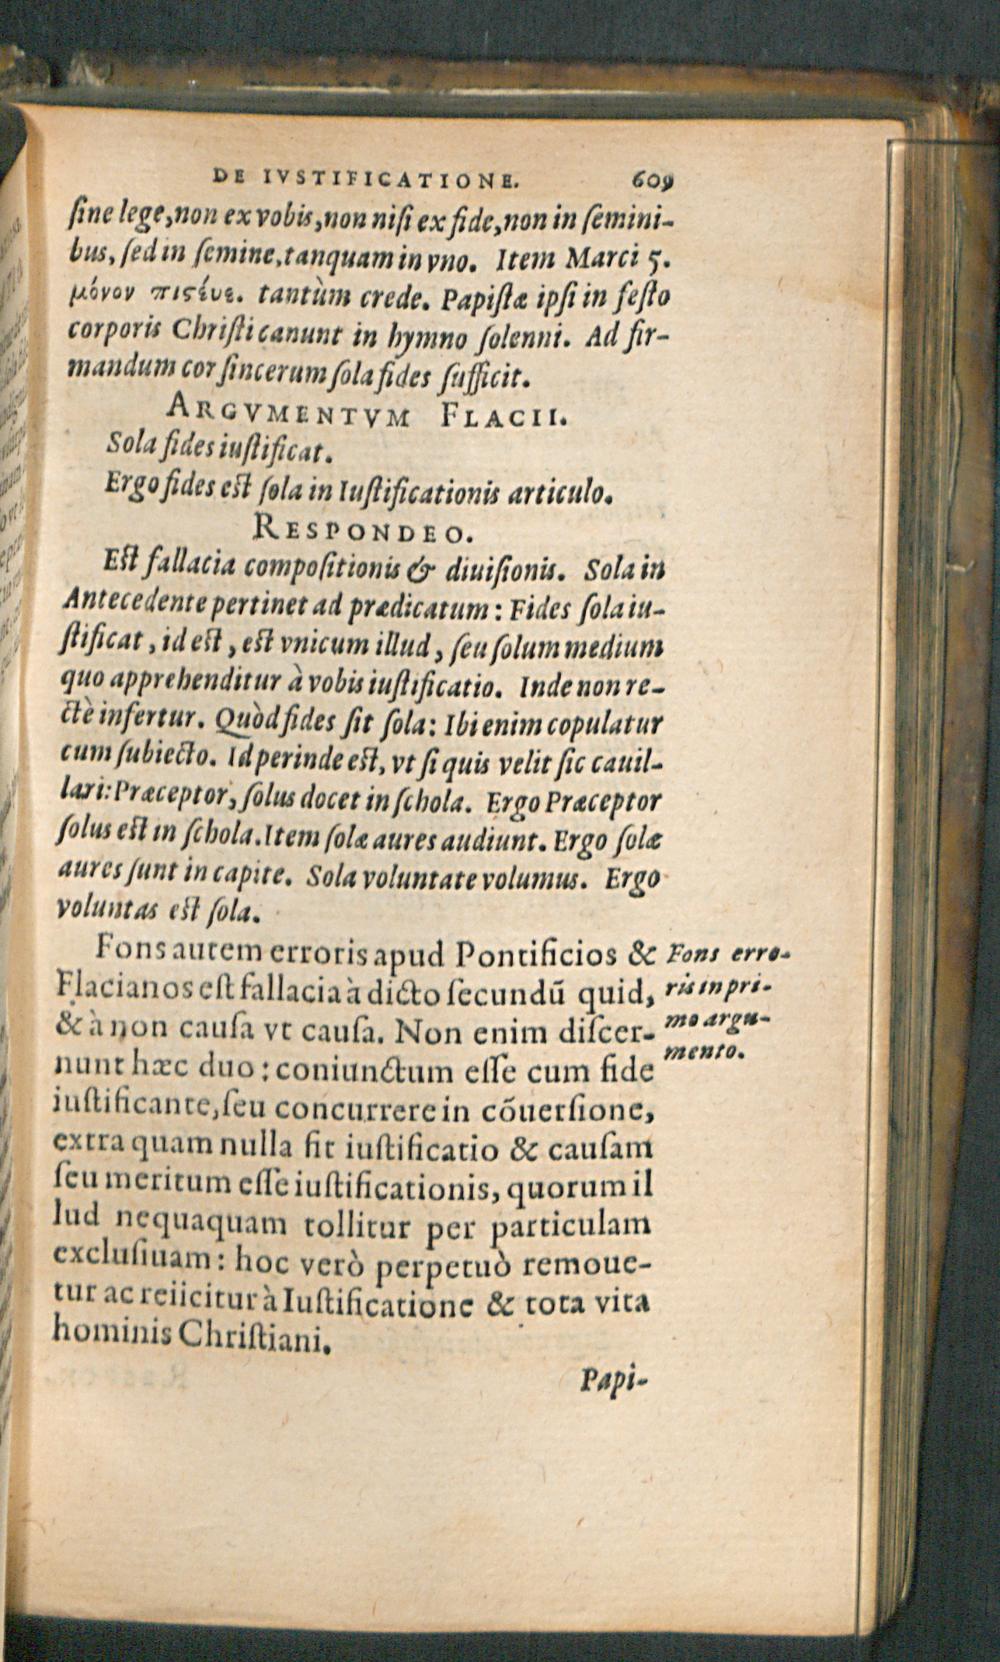 DE IVSTIFICATIONE. 609
ſine lege, non ex vobis, non niſi ex fide, non in ſemini-
bus, ſed in ſemine, tanquam in vno. Item Marci 5.
μόνον πίςευε. tantùm crede. Papiſtæ ipſi in feſto
corporis Chriſti canunt in hymno ſolenni. Ad fir-
mandum cor ſincerum ſola fides ſufficit.
ARGVMENTVM FLACII.
Sola fides iuſtificat.
Ergo fides eſt ſola in Iuſtificationis articulo.
RESPONDEO.
Eſt fallacia compoſitionis & diuiſionis. Sola in
Antecedente pertinet ad prædicatum: Fides ſola iu-
ſtificat, id eſt, eſt vnicum illud, ſeu ſolum medium
quo apprehenditur à vobis iuſtificatio. Inde non re-
ctè infertur. Quòd fides ſit ſola: Ibi enim copulatur
cum ſubiecto. Id perinde eſt, vt ſi quis velit ſic cauil-
lari: Præceptor, ſolus docet in ſchola. Ergo Præceptor
ſolus eſt in ſchola. Item ſolæ aures audiunt. Ergo ſolæ
aures ſunt in capite. Sola voluntate volumus. Ergo
voluntas eſt ſola.
Fons autem erroris apud Pontificios &
Flacianos eſt fallacia à dicto ſecundū quid,
& à non cauſa vt cauſa. Non enim diſcer-
nunt hæc duo: coniunctum eſſe cum fide
iuſtificante, ſeu concurrere in cōuerſione,
extra quam nulla fit iuſtificatio & cauſam
ſeu meritum eſſe iuſtificationis, quorum il
lud nequaquam tollitur per particulam
excluſiuam: hoc verò perpetuò remoue-
tur ac reiicitur à Iuſtificatione & tota vita
hominis Chriſtiani.
Fons erro-
ris in pri-
mo argu-
mento.
Papi-